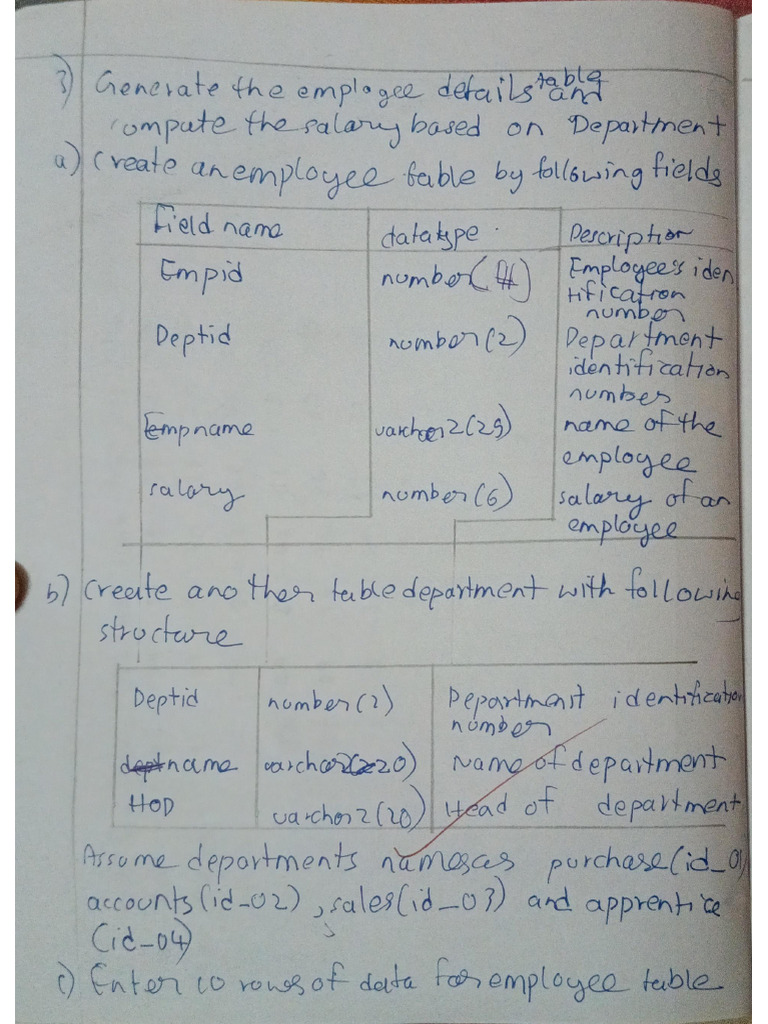 3) Generate the employee details table and
compute the salary based on Department
a) Create an employee table by following fields
Field name datatype Description
Empid number( ) Employee's iden
tification
number
Deptid number(2) Department
identification
number
Empname varchar2(25) name of the
employee
salary number(6) salary of an
employee
b) Create another table department with following
structure
Deptid number(2) Department identification
number
name varchar2(20) Name of department
HOD varchar2(20) Head of department
Assume departments names as purchase(id_01)
accounts(id_02), sales(id_03) and apprentice
(id_04)
c) Enter 10 rows of data for employee table